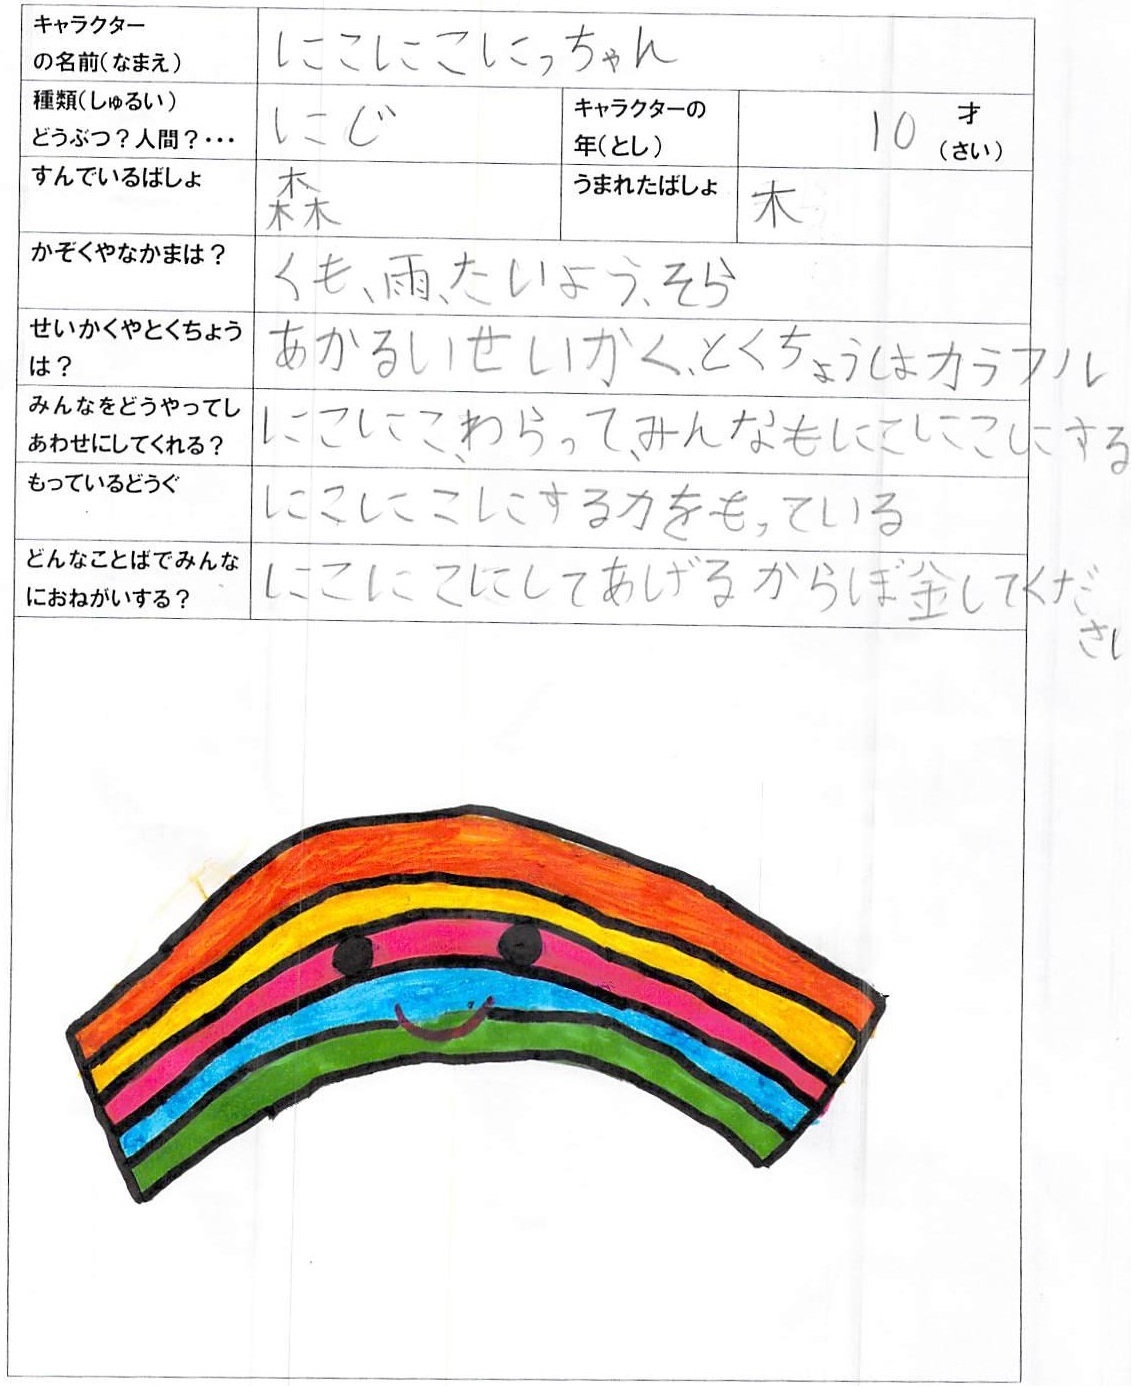 キャラクター
の名前(なまえ)
にこにこにっちゃん
種類(しゅるい)
どうぶつ?人間?・・・
にじ
キャラクターの
年(とし)
10
才
(さい)
すんでいるばしょ
森
うまれたばしょ
木
かぞくやなかまは?
くも、雨、たいよう、そら
せいかくやとくちょう
は?
あかるいせいかく、とくちょうはカラフル
みんなをどうやってし
あわせにしてくれる?
にこにこ、わらって、みんなもにこにこにする
もっているどうぐ
にこにこにする力をもっている
どんなことばでみんな
におねがいする?
にこにこにしてあげるからぼ金してくだ
さい